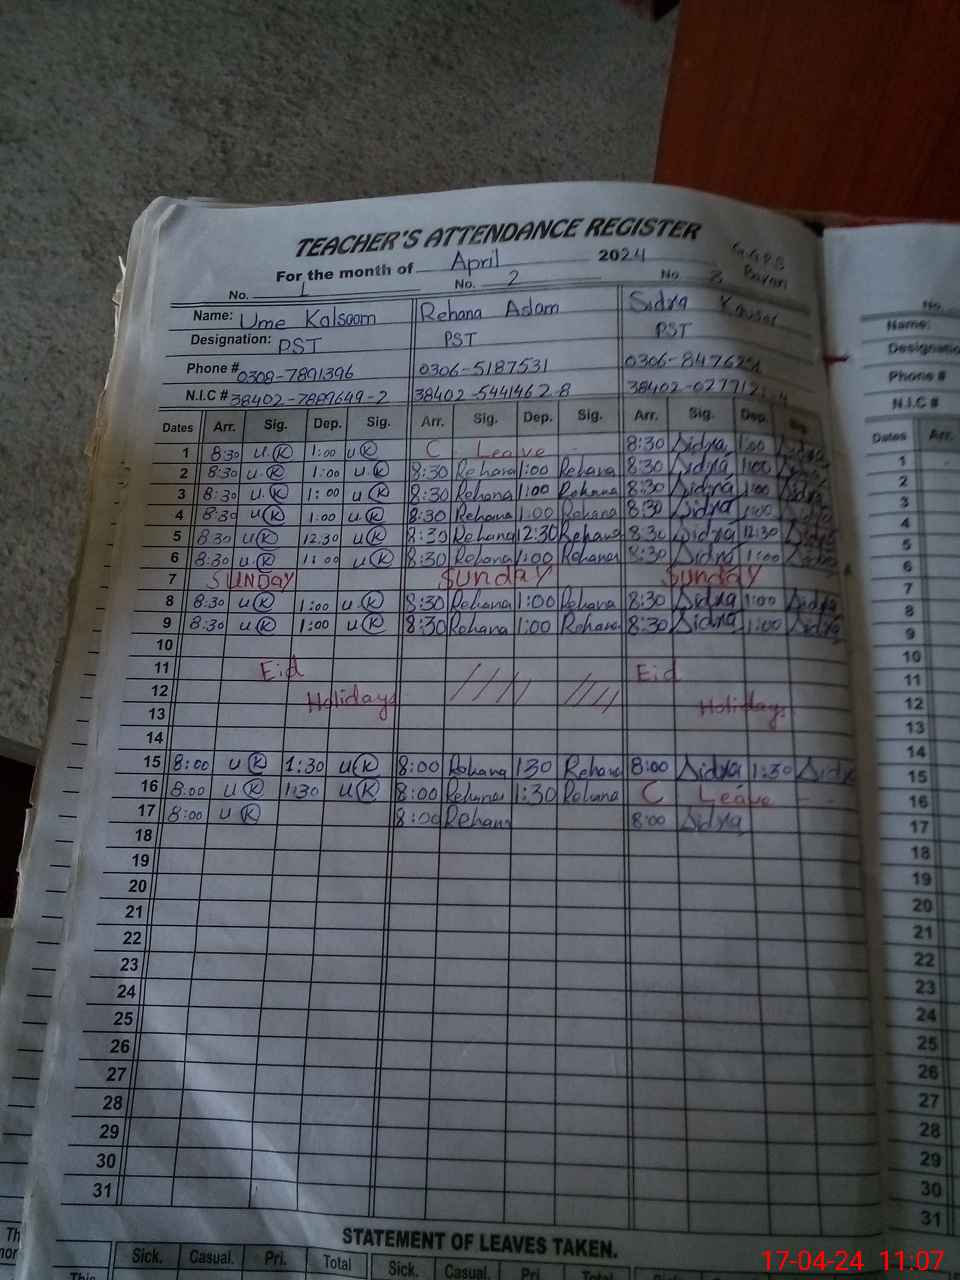 TEACHER'S ATTENDANCE REGISTER
For the month of April 2024 G.G.P.S
No. 1 No. 2 No. 3
Name: Ume Kalsoom Rehana Aslam Sidra Kausar
Designation: PST PST PST
Phone # 0308-7891396 0306-5187531 0306-84762
N.I.C # 38402-7889649-2 38402-5441462-8 38402-027712
Dates Arr. Sig. Dep. Sig. Arr. Sig. Dep. Sig. Arr. Sig. Dep. Sig.
1 8:30 U.K 1:00 UK C Leave 8:30 Sidra 1:00 Sidra
2 8:30 U.K 1:00 U.K 8:30 Rehana 1:00 Rehana 8:30 Sidra 1:00 Sidra
3 8:30 U.K 1:00 UK 8:30 Rehana 1:00 Rehana 8:30 Sidra 1:00 Sidra
4 8:30 UK 1:00 U.K 8:30 Rehana 1:00 Rehana 8:30 Sidra 1:00 Sidra
5 8:30 UK 12:30 UK 8:30 Rehana 12:30 Rehana 8:30 Sidra 12:30 Sidra
6 8:30 UK 11:00 UK 8:30 Rehana 1:00 Rehana 8:30 Sidra 1:00 Sidra
7 SUNDAY SUNDAY SUNDAY
8 8:30 UK 1:00 U.K 8:30 Rehana 1:00 Rehana 8:30 Sidra 1:00 Sidra
9 8:30 UK 1:00 UK 8:30 Rehana 1:00 Rehana 8:30 Sidra 1:00 Sidra
10
11 Eid Eid
12 Holidays Holidays
13
14
15 8:00 U K 1:30 UK 8:00 Rehana 130 Rehana 8:00 Sidra 1:30 Sidra
16 8:00 U K 1:30 UK 8:00 Rehana 1:30 Rehana C Leave
17 8:00 U K 8:00 Rehana 8:00 Sidra
18
19
20
21
22
23
24
25
26
27
28
29
30
31
STATEMENT OF LEAVES TAKEN.
Sick. Casual. Pri. Total Sick. Casual. Pri. Total
This
No.
Name:
Designatio
Phone #
N.I.C #
Dates Arr.
1
2
3
4
5
6
7
8
9
10
11
12
13
14
15
16
17
18
19
20
21
22
23
24
25
26
27
28
29
30
31
17-04-24 11:07